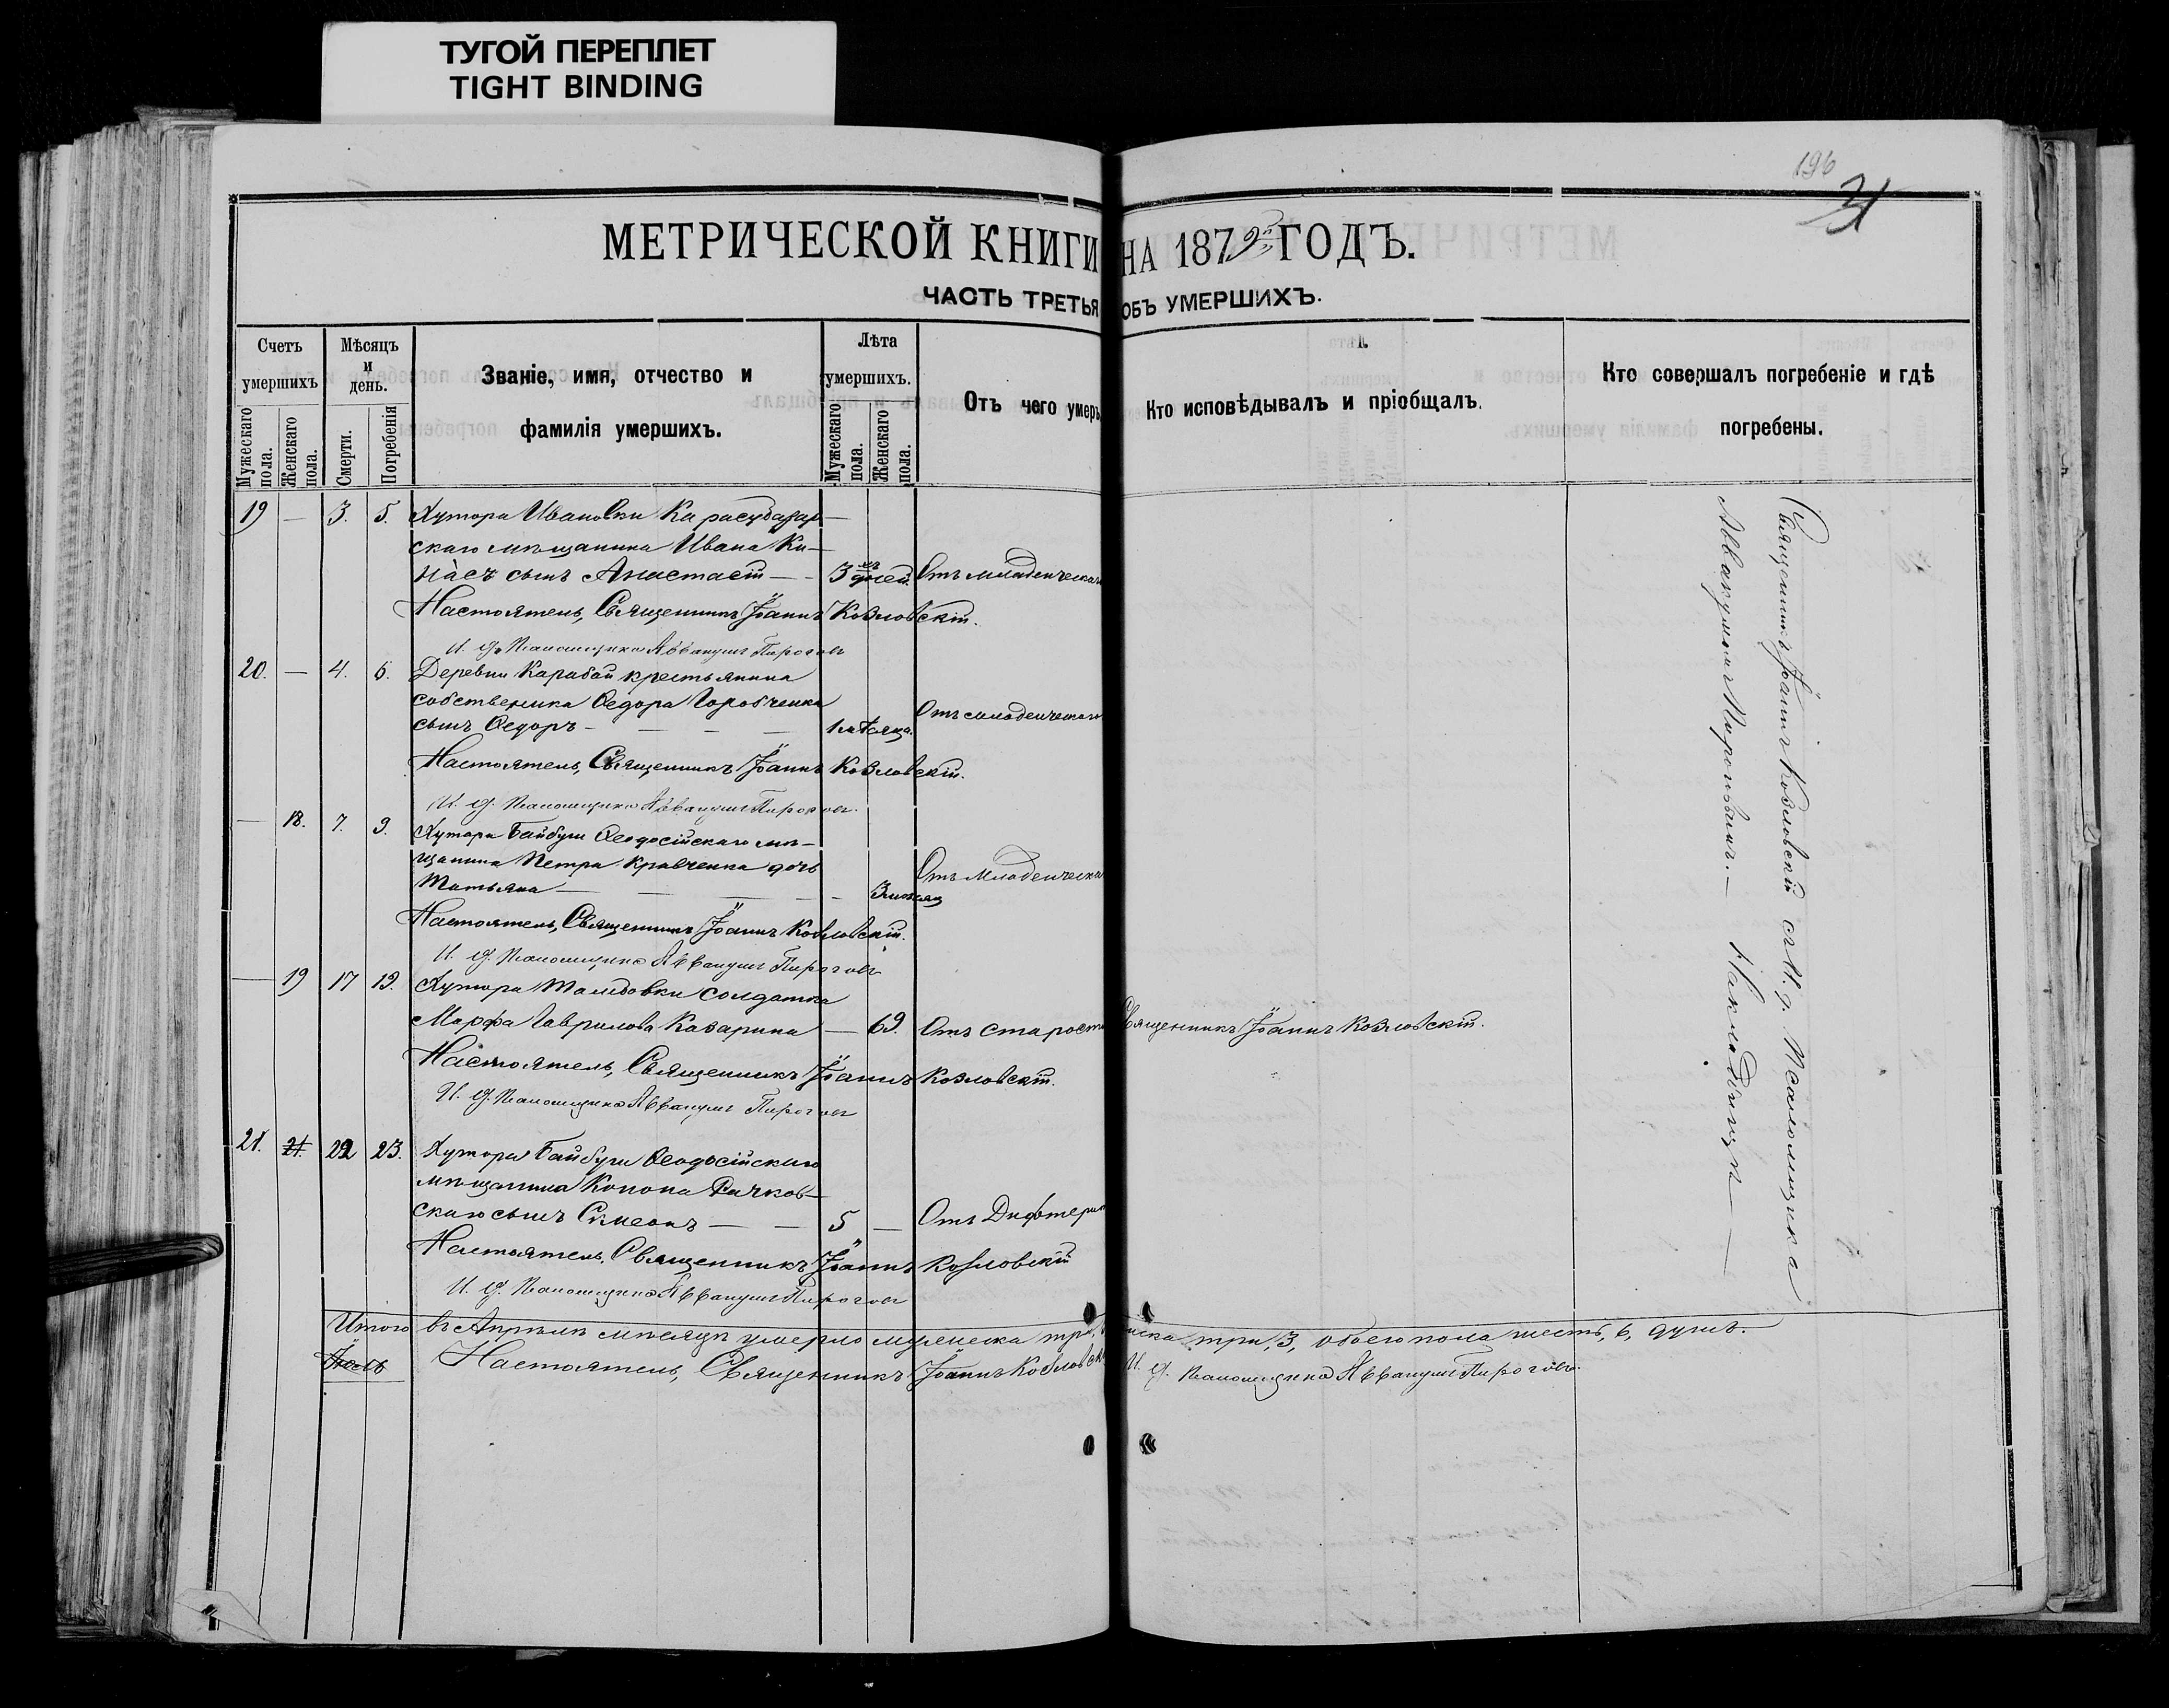 ТУГОЙ ПЕРЕПЛЕТ
TIGHT BINDING
196
31
МЕТРИЧЕСКОЙ КНИГИ НА 1879й ГОДЪ.
ЧАСТЬ ТРЕТЬЯ ОБЪ УМЕРШИХЪ.
Счетъ умершихъ
Мужескаго пола.
Женскаго пола.
Мѣсяцъ и день.
Смерти.
Погребенія
Званіе, имя, отчество и
фамилія умершихъ.
Лѣта умершихъ.
Мужескаго пола.
Женскаго пола.
Отъ чего умеръ
Кто исповѣдывалъ и пріобщалъ.
Кто совершалъ погребеніе и гдѣ
погребены.
19 — 3. 5. Хутора Ивановки Карасубазар-
скаго мѣщанина Ивана Ки-
насъ сынъ Анастасій — 3 дней. Отъ младенческаго
Настоятель, Священникъ Іоаннъ Козловскій.
И. д. Псаломщика Аввакумъ Пироговъ
20. — 4. 6. Деревни Карабай крестьянина
собственника Ѳедора Горобченка
сынъ Ѳедоръ — 1 мѣсяца. Отъ младенческаго
Настоятель, Священникъ Іоаннъ Козловскій.
И. д. Псаломщика Аввакумъ Пироговъ.
— 18. 7. 9. Хутора Байбуги Ѳеодосійскаго мѣ-
щанина Петра Кравченка дочь
Татьяна — 3 мѣсяц Отъ Младенческа
Настоятель, Священникъ Іоаннъ Козловскій.
И. д. Псаломщика Аввакумъ Пироговъ
— 19 17 19. Хутора солдатка
Марфа Гаврилова Казарина — 69. Отъ старости Священникъ Іоаннъ Козловскій.
Настоятель, Священникъ Іоаннъ Козловскій.
И. д. Псаломщика Аввакумъ Пироговъ
21. 21. 22 23. Хутора Байбуги Ѳеодосійскаго
мѣщанина Конона Рычков-
скаго сынъ Симеонъ — 5 — Отъ Дифтерит
Настоятель, Священникъ Іоаннъ Козловскій
И. д. Псаломщика Аввакумъ Пироговъ
Итого въ Апрѣлѣ мѣсяцѣ умерло мужеска три, женска три, 3, обоего пола шесть, 6, душъ.
Настоятель, Священникъ Іоаннъ Козловскій И. д. Псаломщика Аввакумъ Пироговъ.
Священникъ Іоаннъ Козловскій съ И. д. Псаломщика
Аввакумомъ Пироговымъ. — На кладбищѣ —